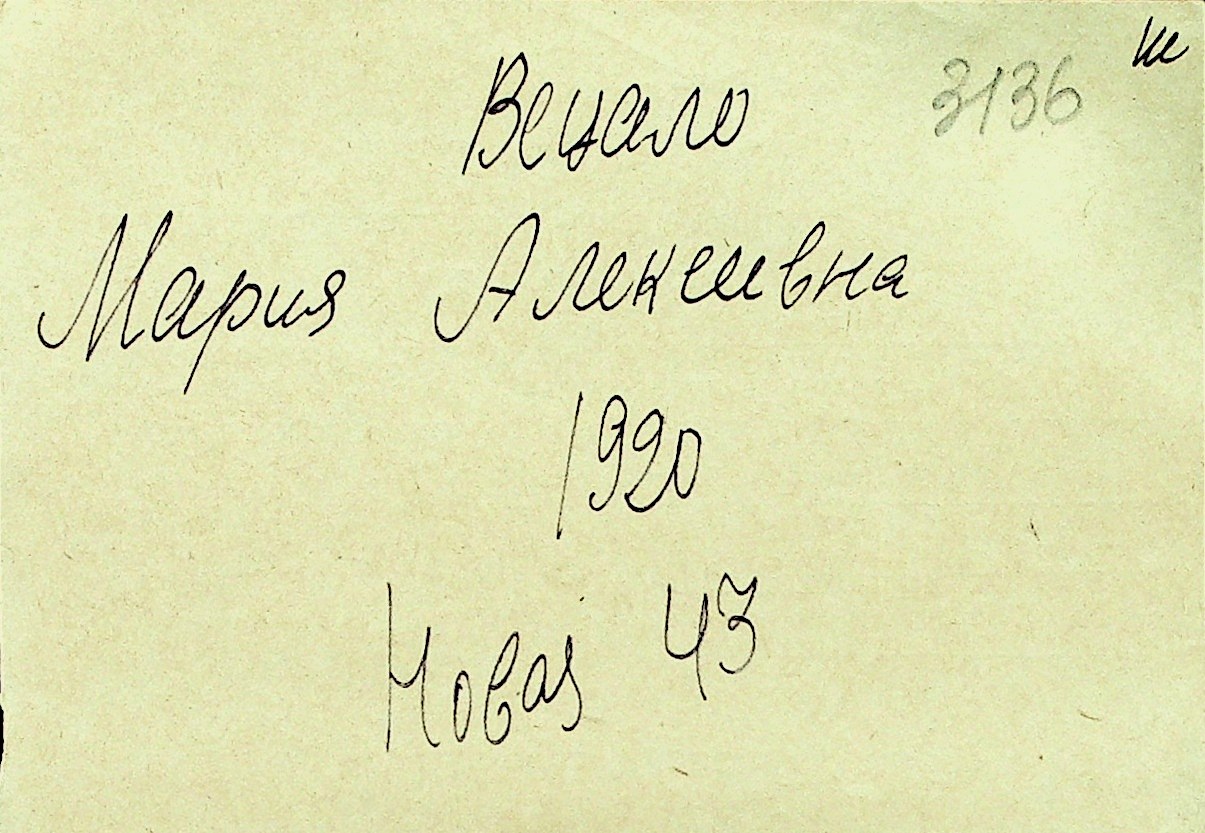 3136
Вецало
Мария Алексеевна
1920
Новая 43